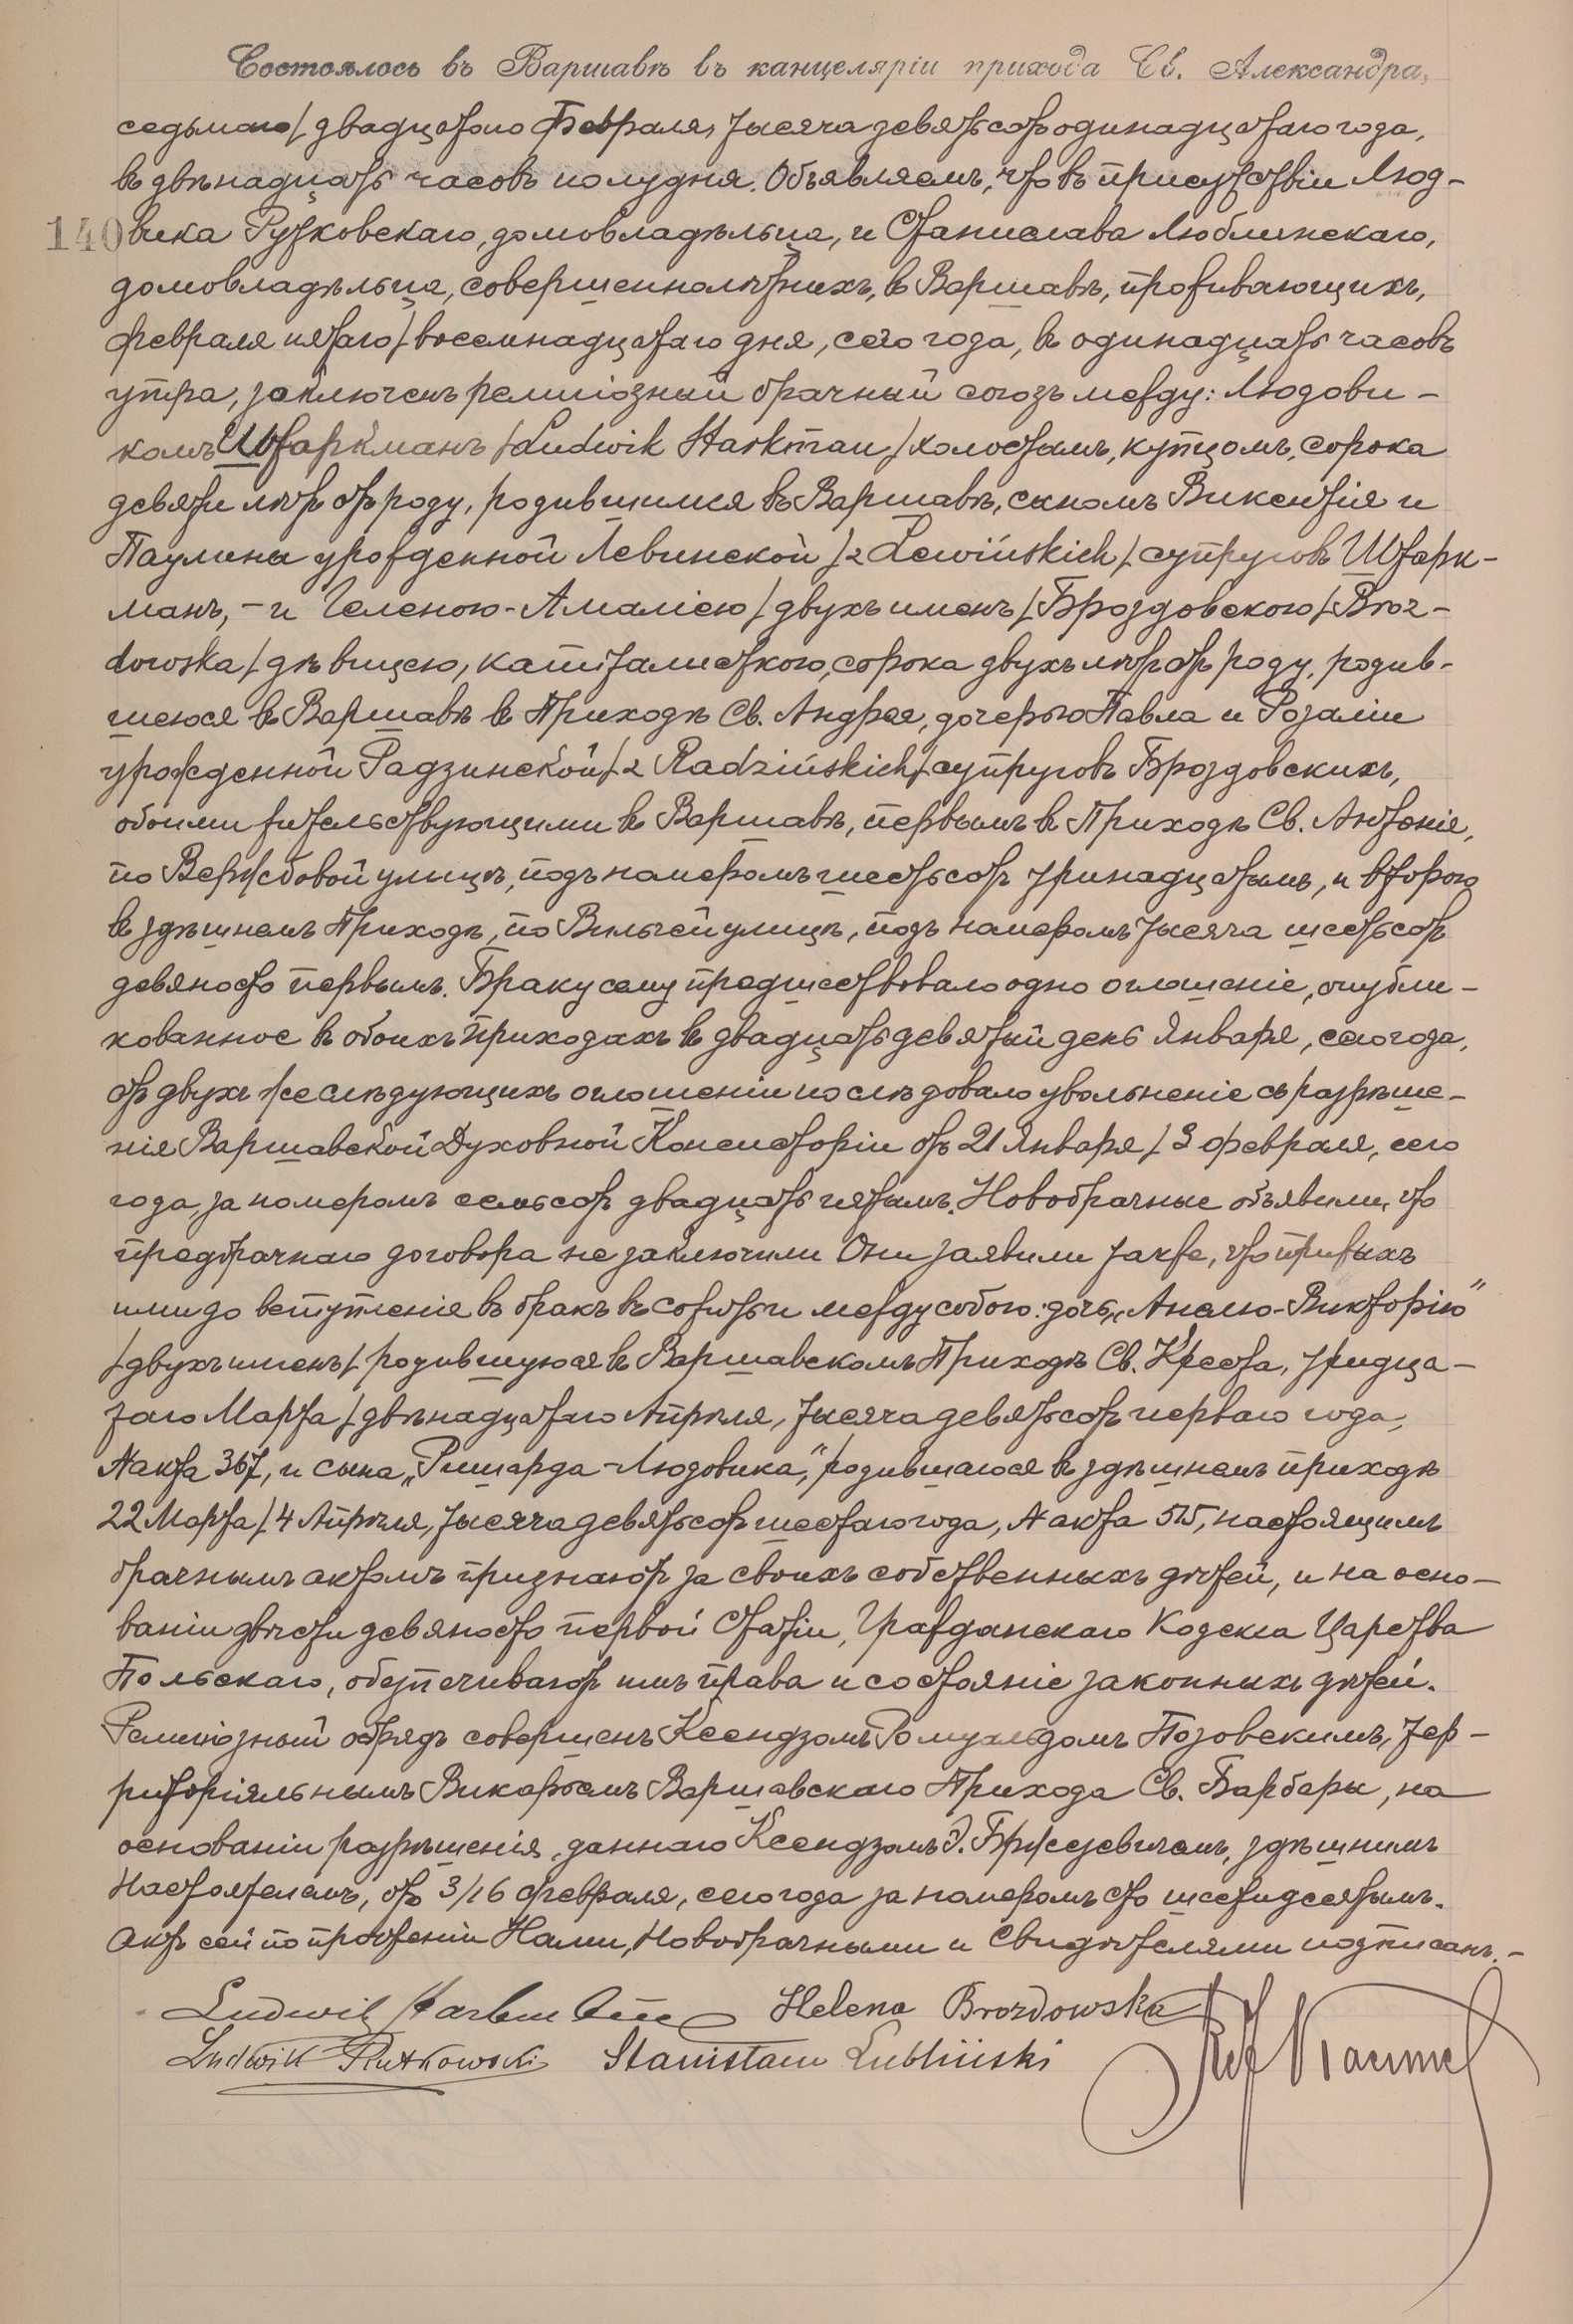 Состоялось въ Варшавѣ въ канцеляріи прихода Св. Александра,
седьмаго/двадцатаго Февраля, тысяча девятьсотъ одинадцатаго года,
въ двѣнадцать часовъ полудня. Объявляемъ, что въ присутствіи Люд-
140 вика Рутковскаго, домовладѣльца, и Станислава Люблинскаго,
домовладѣльца, совершеннолѣтнихъ, въ Варшавѣ, проживающихъ,
февраля пятаго/восемнадцатаго дня, сего года, въ одинадцать часовъ
утра, заключенъ религіозный брачный союзъ между: Людови-
комъ Штаркманъ /Ludwik Starkman/ холостымъ, купцомъ, сорока
девяти лѣтъ отъ роду, родившимся въ Варшавѣ, сыномъ Викентія и
Паулины урожденной Левинской /z Lewińskich/ супруговъ Штарк-
манъ, - и Геленою-Амаліею /двухъ именъ/ Броздовскою /Broz-
dowska/ дѣвицею, капиталисткою, сорока двухъ лѣтъ отъ роду, родив-
шеюся въ Варшавѣ въ Приходѣ Св. Андрея, дочерью Павла и Розаліи
урожденной Радзинской /z Radzińskich/ супруговъ Броздовскихъ,
обоими жительствующими въ Варшавѣ, первымъ въ Приходѣ Св. Антонія,
по Вержбовой улицѣ, подъ номеромъ шестьсотъ тринадцатымъ, и второю
въ здѣшнемъ Приходѣ, по Вильчей улицѣ, подъ номеромъ тысяча шестьсотъ
девяносто первымъ. Браку сему предшествовало одно оглашеніе, опубли-
кованное въ обоихъ приходахъ въ двадцать девятый день Января, сего года,
отъ двухъ же слѣдующихъ оглашеніи послѣдовало увольненіе съ разрѣше-
нія Варшавской Духовной Консисторіи отъ 21 Января/3 февраля, сего
года, за номеромъ семьсотъ двадцать пятымъ. Новобрачные объявили, что
предбрачнаго договора не заключили Они заявили также, что прижыхъ
ими до вступленія въ бракъ въ сожитьи между собою: дочь, „Анелю-Викторію"
/двухъ именъ/ родившуюся въ Варшавскомъ Приходѣ Св. Креста, тридца-
таго Марта/двѣнадцатаго Апрѣля, тысяча девятьсотъ перваго года,
N акта 367, и сына „Ришарда-Людовика", родившагося въ здѣшнемъ приходѣ
22 Марта/4 Апрѣля, тысяча девятьсотъ шестаго года, N акта 515, настоящимъ
брачнымъ актомъ признаютъ за своихъ собственныхъ дѣтей, и на осно-
ваніи двѣсти девяносто первой статіи, Гражданскаго Кодекса Царства
Польскаго, обезпечиваютъ имъ права и состояніе законныхъ дѣтей.
Религіозный обрядъ совершенъ Ксендзомъ Ромуальдомъ Позовскимъ, тер-
риторіяльнымъ Викаріемъ Варшавскаго Прихода Св. Барбары, на
основаніи разрѣшенія, даннаго Ксендзомъ Э. Бржезевичемъ, здѣшнимъ
Настоятелемъ, отъ 3/16 февраля, сего года за номеромъ сто шестидесятымъ.
Актъ сей по прочтеніи Нами, Новобрачными и Свидѣтелями подписанъ.-
Ludwik Starkman Helena Brozdowska
Ludwik Rutkowski Stanisław Lubliński